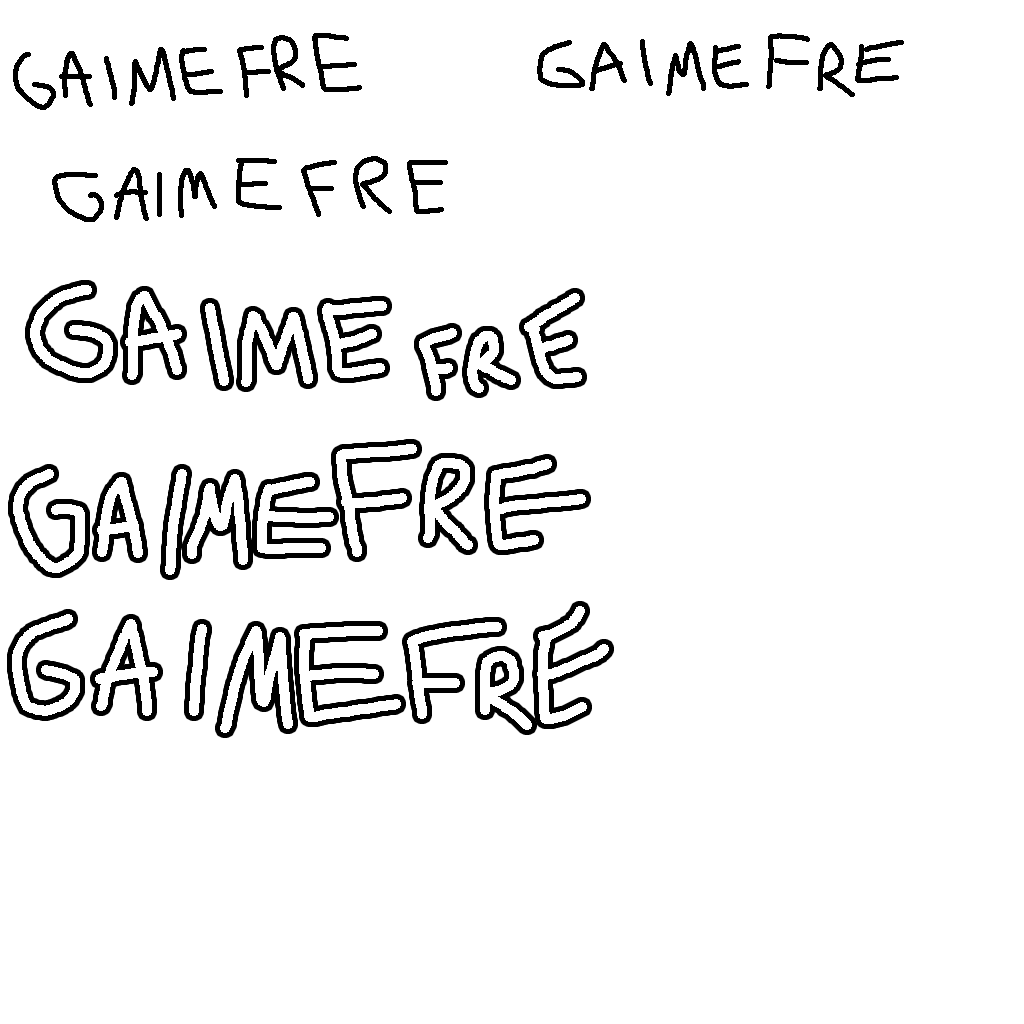 GAIMEFRE GAIMEFRE
GAIMEFRE
GAIMEFRE
GAIMEFRE
GAIMEFRE